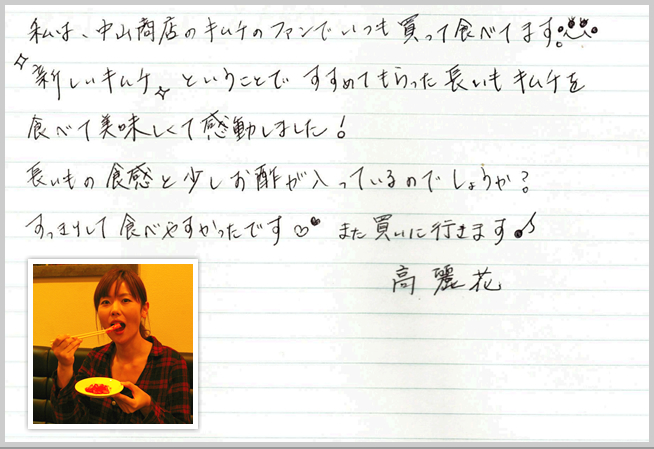 私は、中山商店のキムチのファンでいつも買って食べてます。
新しいキムチ ということで すすめてもらった長いもキムチを
食べて美味しくて感動しました!
長いもの食感と少しお酢が入っているのでしょうか?
すっきりして食べやすかったです♡ また買いに行きます♪
高麗花